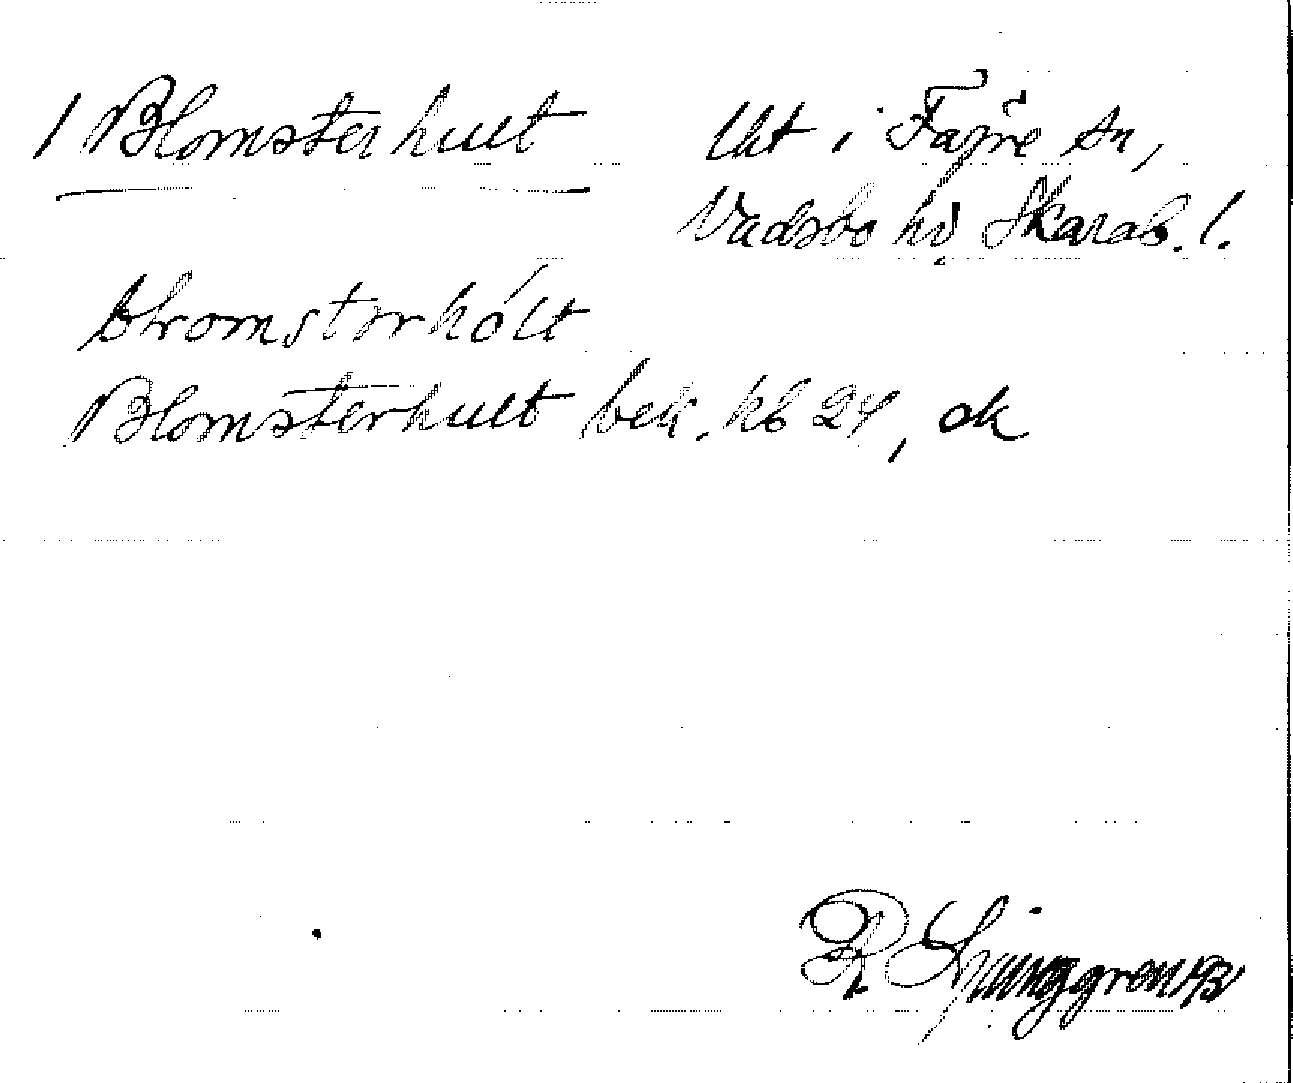 1 Blomsterhult
Ut i Fägre sn,
Vadsbo hd, Skarab. l.
blomstərhólt
Blomsterhult bek. kb 24, ok
R Ljunggren 1931